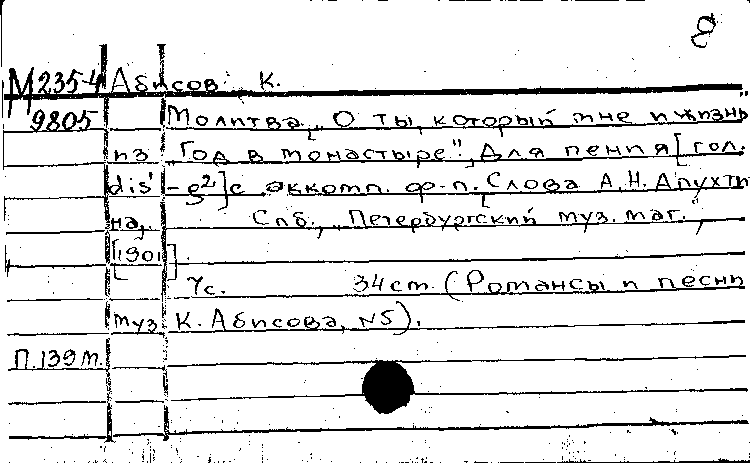 8
М 235-4 Абисов К.
9805 Молитва „О ты, который мне и жизнь"
из „Год в монастыре". Для пения [гол.
dis' - g2] с аккомп. ф-п. Слова А.Н. Апухти
на, Спб., „Петербургский муз. маг.",
[1901]
7с. 34 см. (Романсы и песни
муз. К. Абисова, N5).
П.139м.